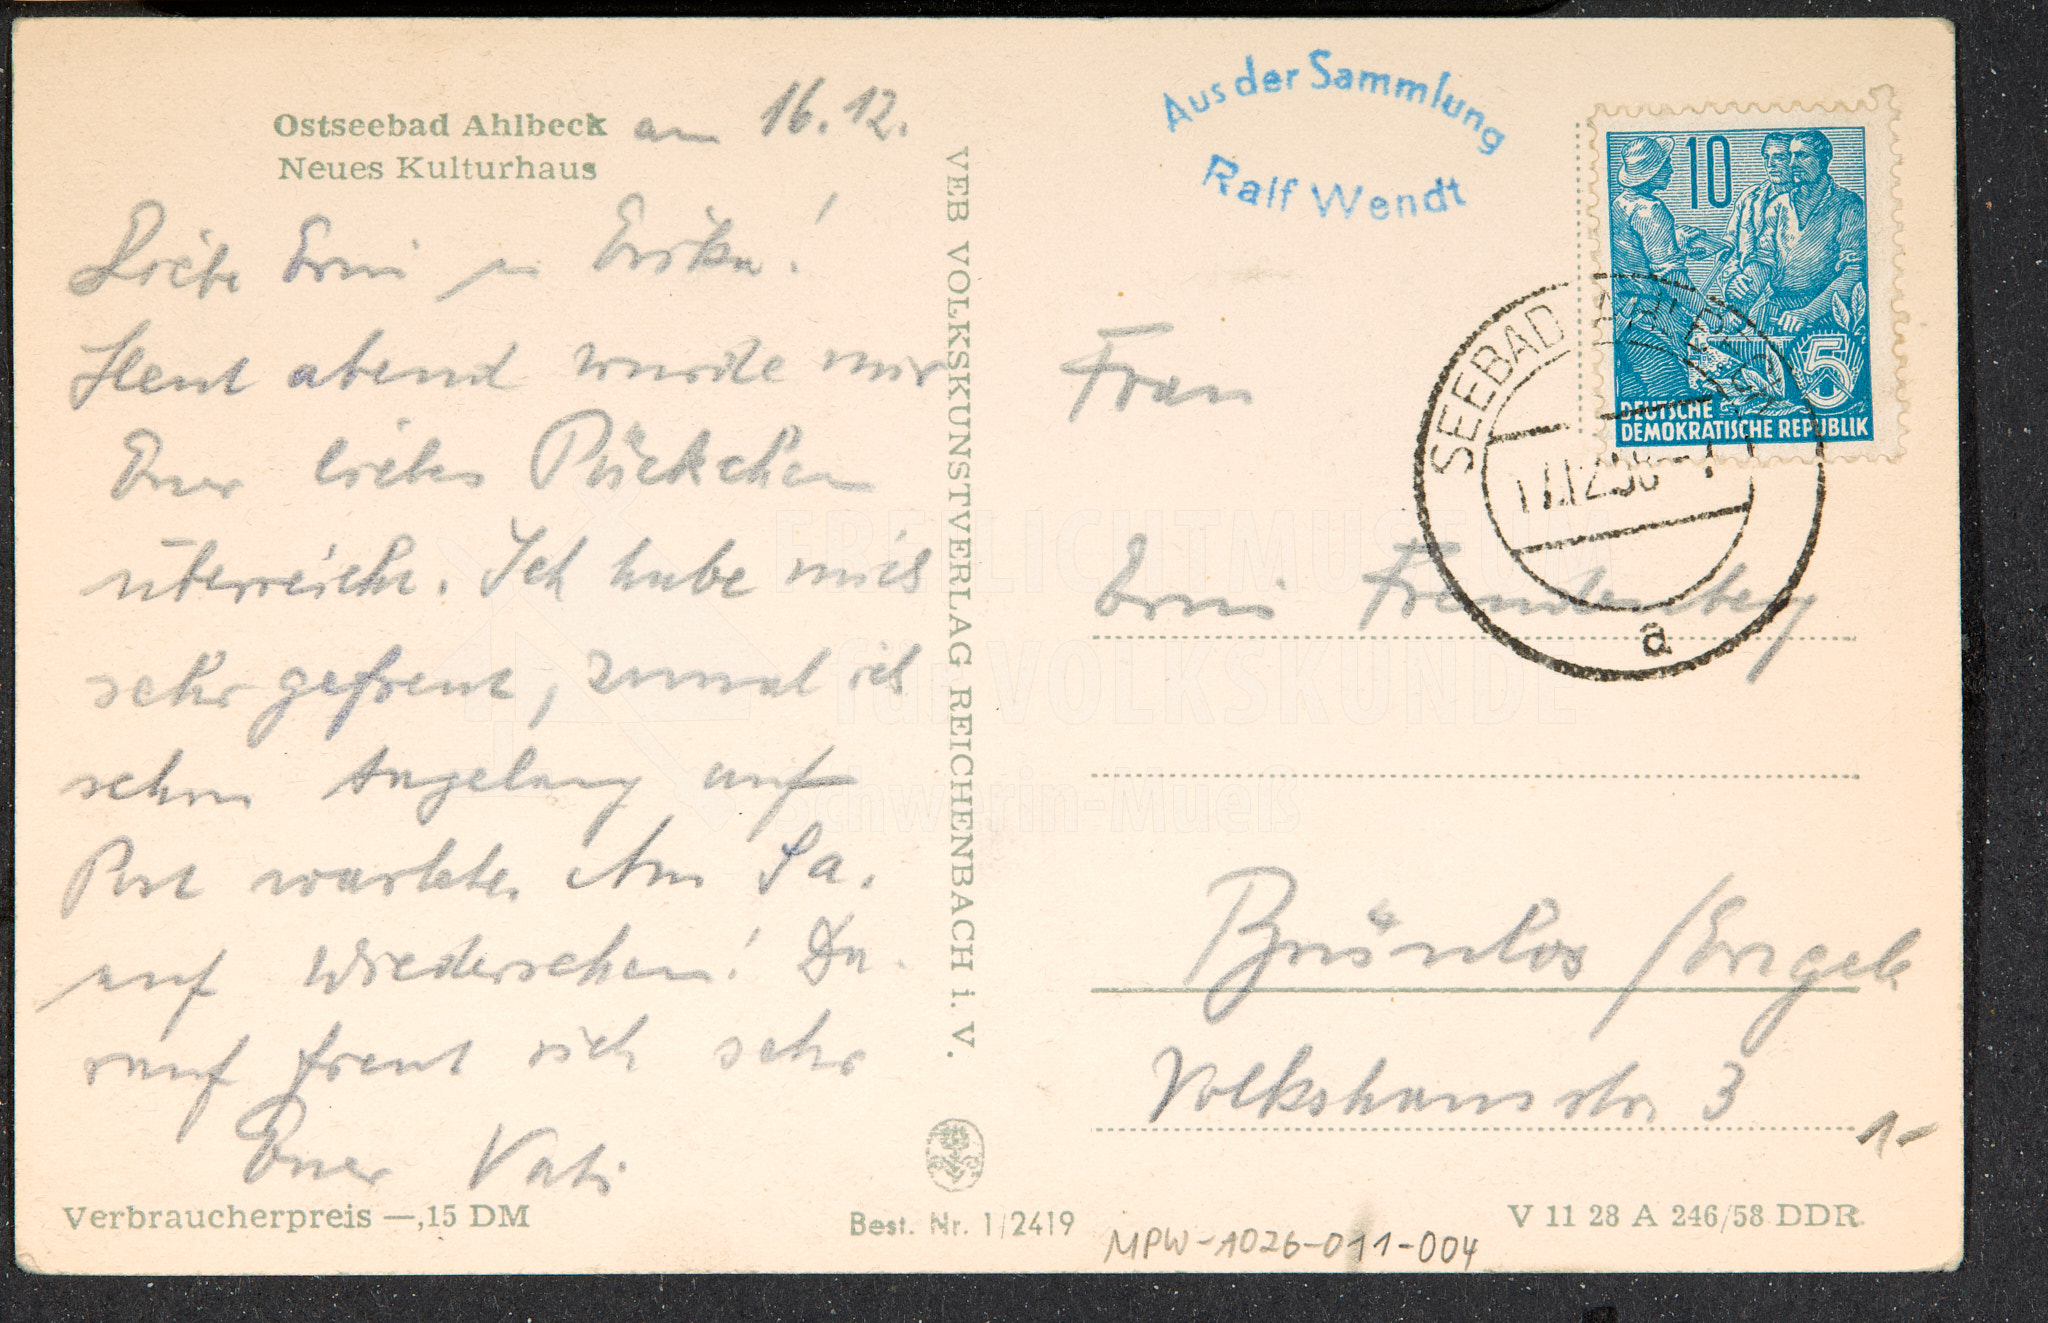 Ostseebad Ahlbeck am 16.12.
Neues Kulturhaus
Liebe Erni u Erika!
Heut abend wurde mir
Euer liebes Päckchen
überreicht. Ich habe mich
sehr gefreut, zumal ich
schon lange auf
Post wartete. Am Sa.
auf Wiedersehen! Da-
rauf freut sich sehr
Euer Vati
Verbraucherpreis —,15 DM
VEB VOLKSKUNSTVERLAG REICHENBACH i. V.
Best. Nr. 1/2419
Aus der Sammlung
Ralf Wendt
10
5
DEUTSCHE
DEMOKRATISCHE REPUBLIK
SEEBAD AHLBECK
17.12.58
a
Frau
Erni Freudenberg
Brünlos /Erzgeb
Volkshausstr. 3
1-
V 11 28 A 246/58 DDR
MPW-1026-011-004
FREILICHTMUSEUM
für VOLKSKUNDE
Schwerin-Mueß